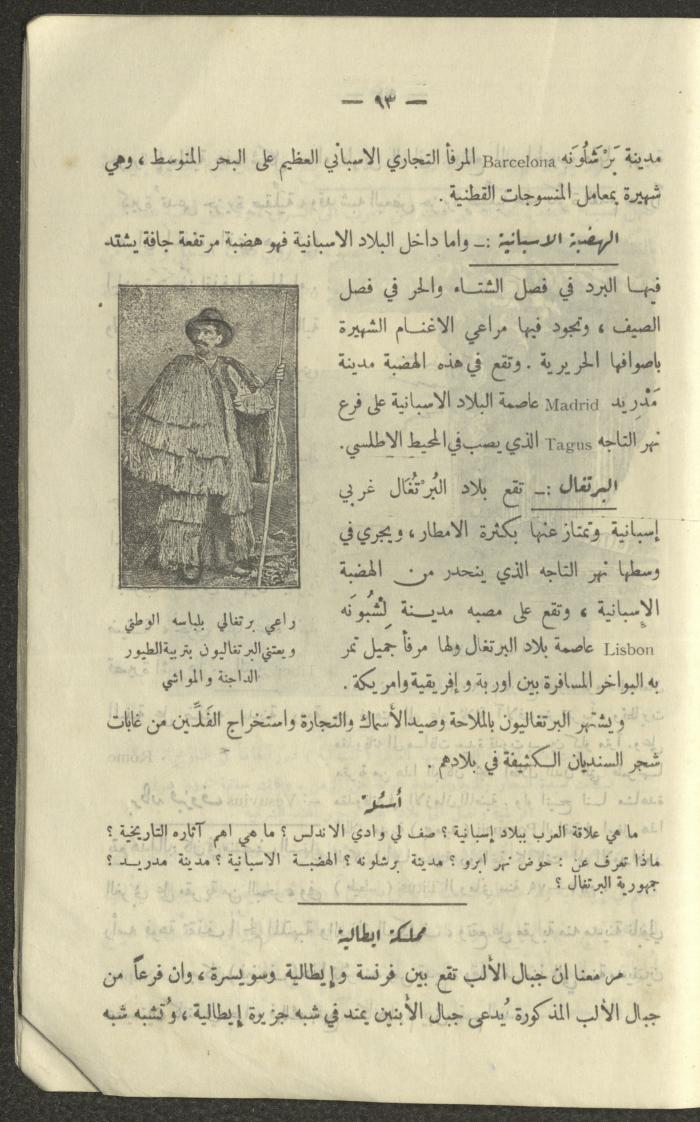 — ٩٣ —
مدينة بَرْشَلُونَه Barcelona المرفأ التجاري الاسباني العظيم على البحر المتوسط ، وهي
شهيرة بمعامل المنسوجات القطنية .
الهضبة الاسبانية :ـ واما داخل البلاد الاسبانية فهو هضبة مرتفعة جافة يشتد
فيها البرد في فصل الشتاء والحر في فصل
الصيف ، وتجود فيها مراعي الاغنام الشهيرة
باصوافها الحريرية . وتقع في هذه الهضبة مدينة
مَدْرِيد Madrid عاصمة البلاد الاسبانية على فرع
نهر التاجه Tagus الذي يصب في المحيط الاطلسي.
البرتغال :ـ تقع بلاد البُرْتُغَال غربي
إسبانية وتمتاز عنها بكثرة الامطار ، ويجري في
وسطها نهر التاجه الذي ينحدر من الهضبة
الإسبانية ، وتقع على مصبه مدينة لِشْبُونَه
Lisbon عاصمة بلاد البرتغال ولها مرفأ جميل تمر
به البواخر المسافرة بين اوربة وإفريقية وامريكة .
راعي برتغالي بلباسه الوطني
ويعتني البرتغاليون بتربية الطيور
الداجنة والمواشي
ويشتهر البرتغاليون بالملاحة وصيد الأسماك والتجارة واستخراج الفَلِّين من غابات
شجر السنديان الكثيفة في بلادهم .
أسئلة
ما هي علاقة العرب ببلاد إسبانية ؟ صف لي وادي الاندلس ؟ ما هي اهم آثاره التاريخية ؟
ماذا تعرف عن : حوض نهر ابرو ؟ مدينة برشلونه ؟ الهضبة الاسبانية ؟ مدينة مدريد ؟
جمهورية البرتغال ؟
مملكة ايطالية
مر معنا ان جبال الألب تقع بين فرنسة وإيطالية وسويسرة ، وان فرعاً من
جبال الألب المذكورة يُدعى جبال الأبنين يمتد في شبه جزيرة إيطالية ، وتُشبه شبه